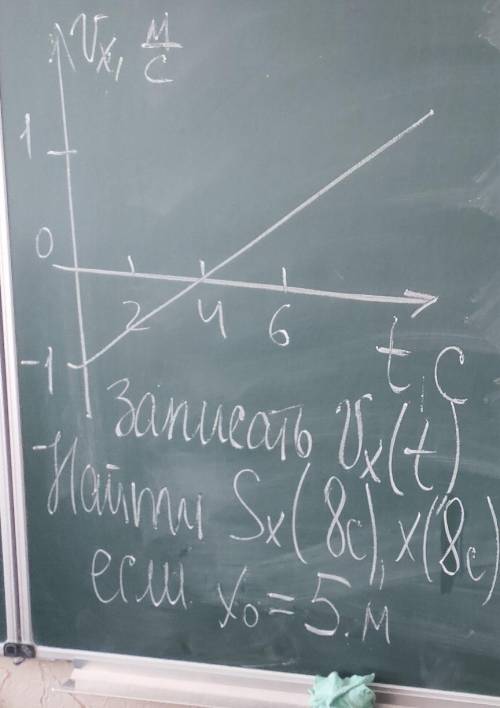 Vx, м/с
1
0
2 4 6
-1
t, с
Записать Vx(t)
Найти Sx(8с), x(8с)
если x₀ = 5 м